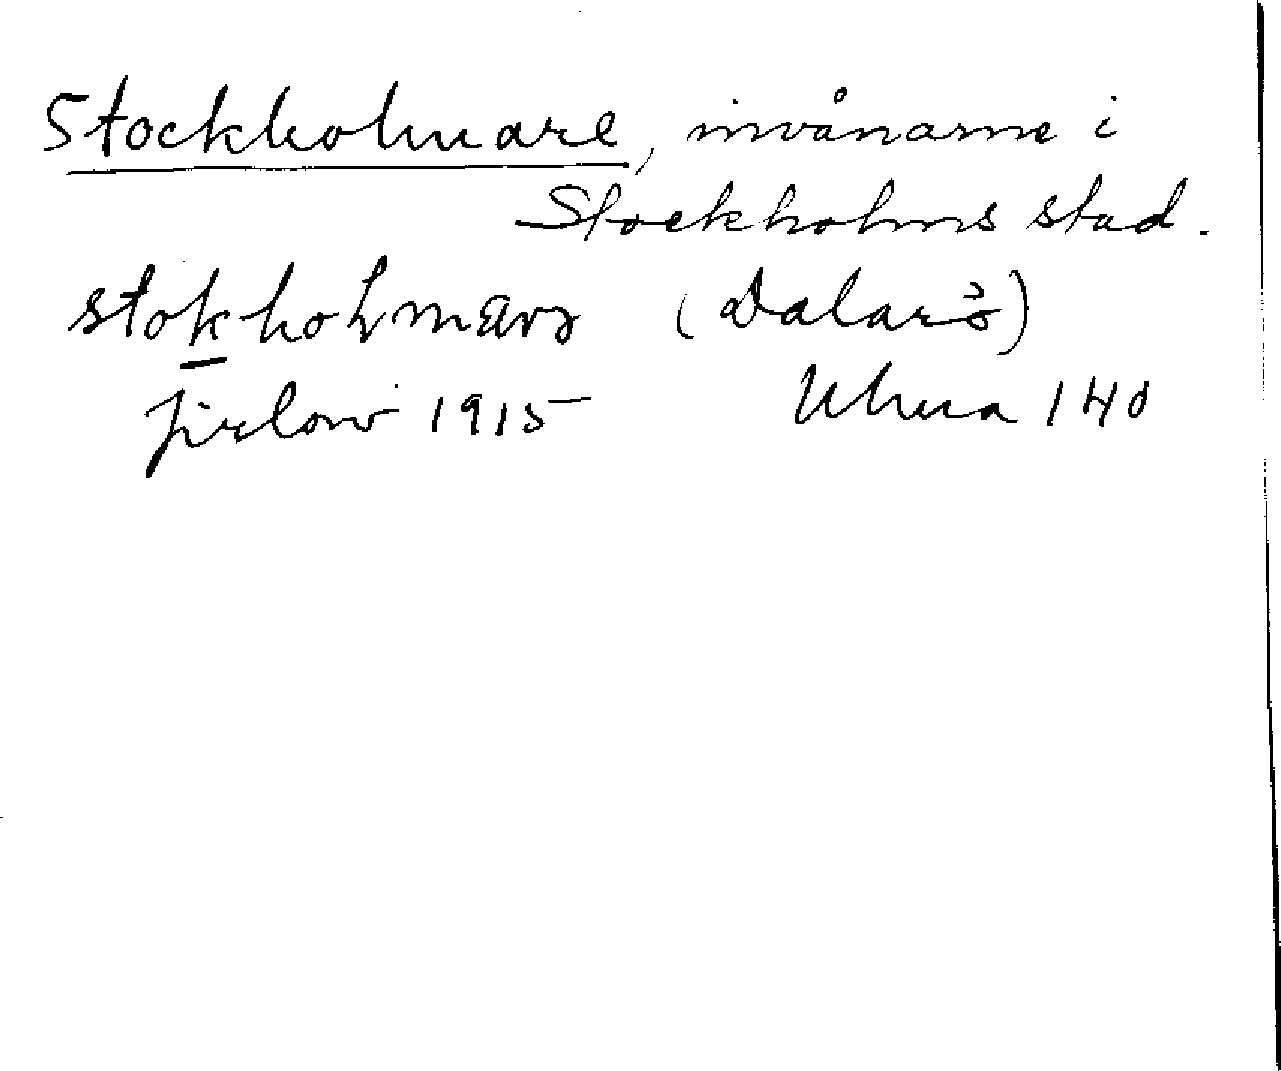 Stockholmare, invånarne i
Stockholms stad.
stokholmarə (Dalarö)
Jirlow 1915 Uhura 140